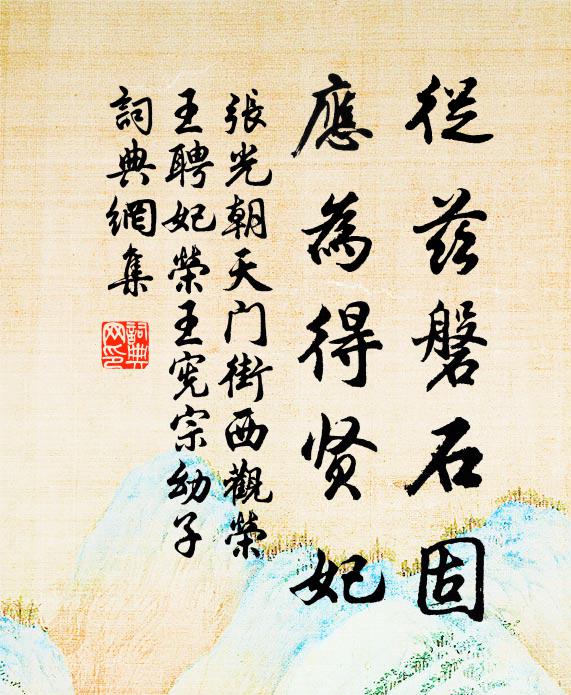 從茲磐石固
應為得賢妃
張光朝天门街西觀榮
王聘妃榮王宪宗幼子
詞典網集
詞典网印